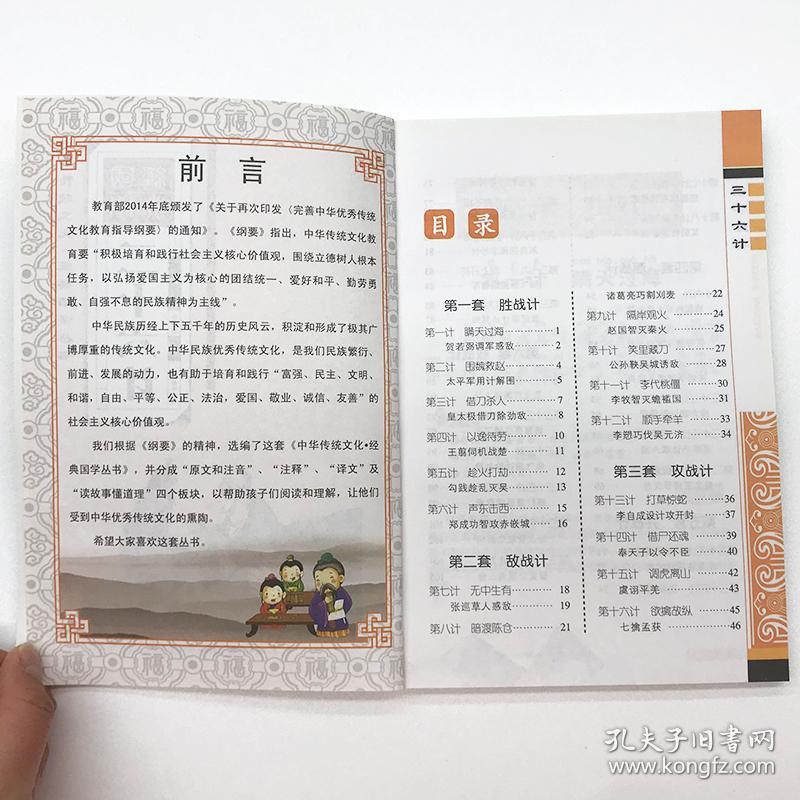 前 言
教育部2014年底颁发了《关于再次印发〈完善中华优秀传统
文化教育指导纲要〉的通知》。《纲要》指出，中华传统文化教
育要“积极培育和践行社会主义核心价值观，围绕立德树人根本
任务，以弘扬爱国主义为核心的团结统一、爱好和平、勤劳勇
敢、自强不息的民族精神为主线”。
中华民族历经上下五千年的历史风云，积淀和形成了极其广
博厚重的传统文化。中华民族优秀传统文化，是我们民族繁衍、
前进、发展的动力，也有助于培育和践行“富强、民主、文明、
和谐，自由、平等、公正、法治，爱国、敬业、诚信、友善”的
社会主义核心价值观。
我们根据《纲要》的精神，选编了这套《中华传统文化•经
典国学丛书》，并分成“原文和注音”、“注释”、“译文”及
“读故事懂道理”四个板块，以帮助孩子们阅读和理解，让他们
受到中华优秀传统文化的熏陶。
希望大家喜欢这套丛书。
目录
第一套 胜战计
第一计 瞒天过海 ………… 1
贺若弼调军惑敌 ………… 2
第二计 围魏救赵 ………… 4
太平军用计解围 ………… 5
第三计 借刀杀人 ………… 7
皇太极借刀除劲敌 ……… 8
第四计 以逸待劳 ………… 10
王翦伺机战楚 ………… 11
第五计 趁火打劫 ………… 12
勾践趁乱灭吴 ………… 13
第六计 声东击西 ………… 15
郑成功智攻赤嵌城 ……… 16
第二套 敌战计
第七计 无中生有 ………… 18
张巡草人惑敌 ………… 19
第八计 暗渡陈仓 ………… 21
诸葛亮巧割刈麦 ………… 22
第九计 隔岸观火 ………… 24
赵国智灭秦火 ………… 25
第十计 笑里藏刀 ………… 27
公孙鞅吴城诱敌 ………… 28
第十一计 李代桃僵 ……… 30
李牧智灭蟾褴国 ………… 31
第十二计 顺手牵羊 ……… 33
李愬巧伐吴元济 ………… 34
第三套 攻战计
第十三计 打草惊蛇 ……… 36
李自成设计攻开封 ……… 37
第十四计 借尸还魂 ……… 39
奉天子以令不臣 ………… 40
第十五计 调虎离山 ……… 42
虞诩平羌 ………… 43
第十六计 欲擒故纵 ……… 45
七擒孟获 ………… 46
三十六计
孔夫子旧书网
www.kongfz.com